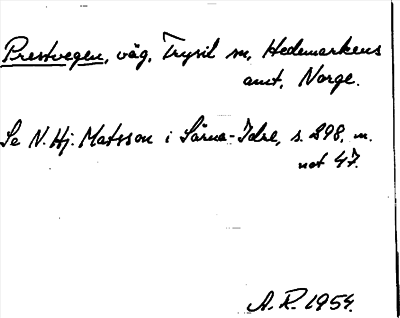 Prestvegen, väg, Trysil sn, Hedemarkens
amt, Norge.
Se N. Hj. Matsson i Särna-Idre, s. 298, m.
not 47.
A. R. 1954.